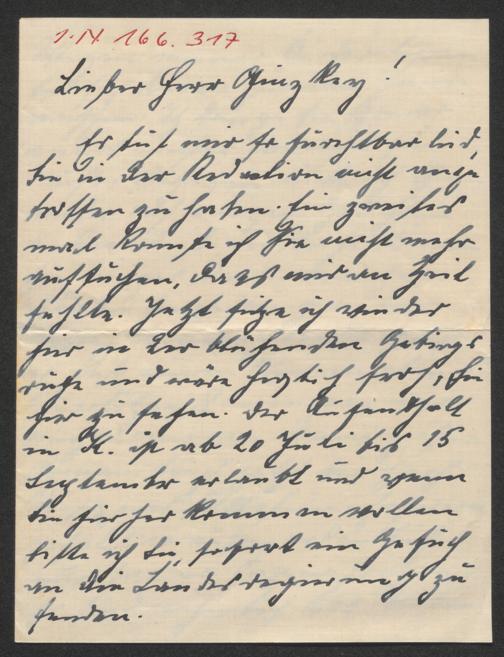 I.N. 166.317
Lieber Herr Ginzkey!
Es tut mir so furchtbar leid,
Sie in der Redaktion nicht ange
troffen zu haben. Ein zweites
mal konnte ich Sie nicht mehr
aufsuchen, da es mir an Zeit
fehlte. Jetzt sitze ich wieder
hier in der blühenden Gebirgs
ruhe und wäre herzlich froh, Sie
hier zu sehen. Der Aufenthalt
in K. ist ab 20 Juli bis 15
September erlaubt und wenn
Sie hierher kommen wollen
bitte ich Sie, sofort ein Gesuch
an die Landesregierung zu
senden.